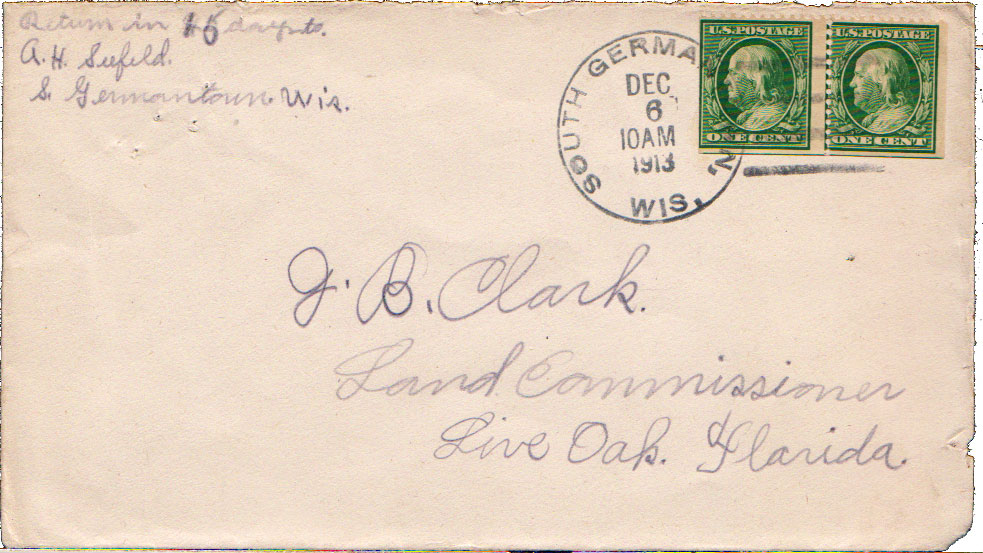 Return in 15 days to.
A. H. Seefeld.
S. Germantown. Wis.
SOUTH GERMA N, WIS.
DEC
6
10AM
1913
U.S. POSTAGE
ONE CENT
U.S. POSTAGE
ONE CENT
J. B. Clark.
Land Commissioner
Live Oak. Florida.